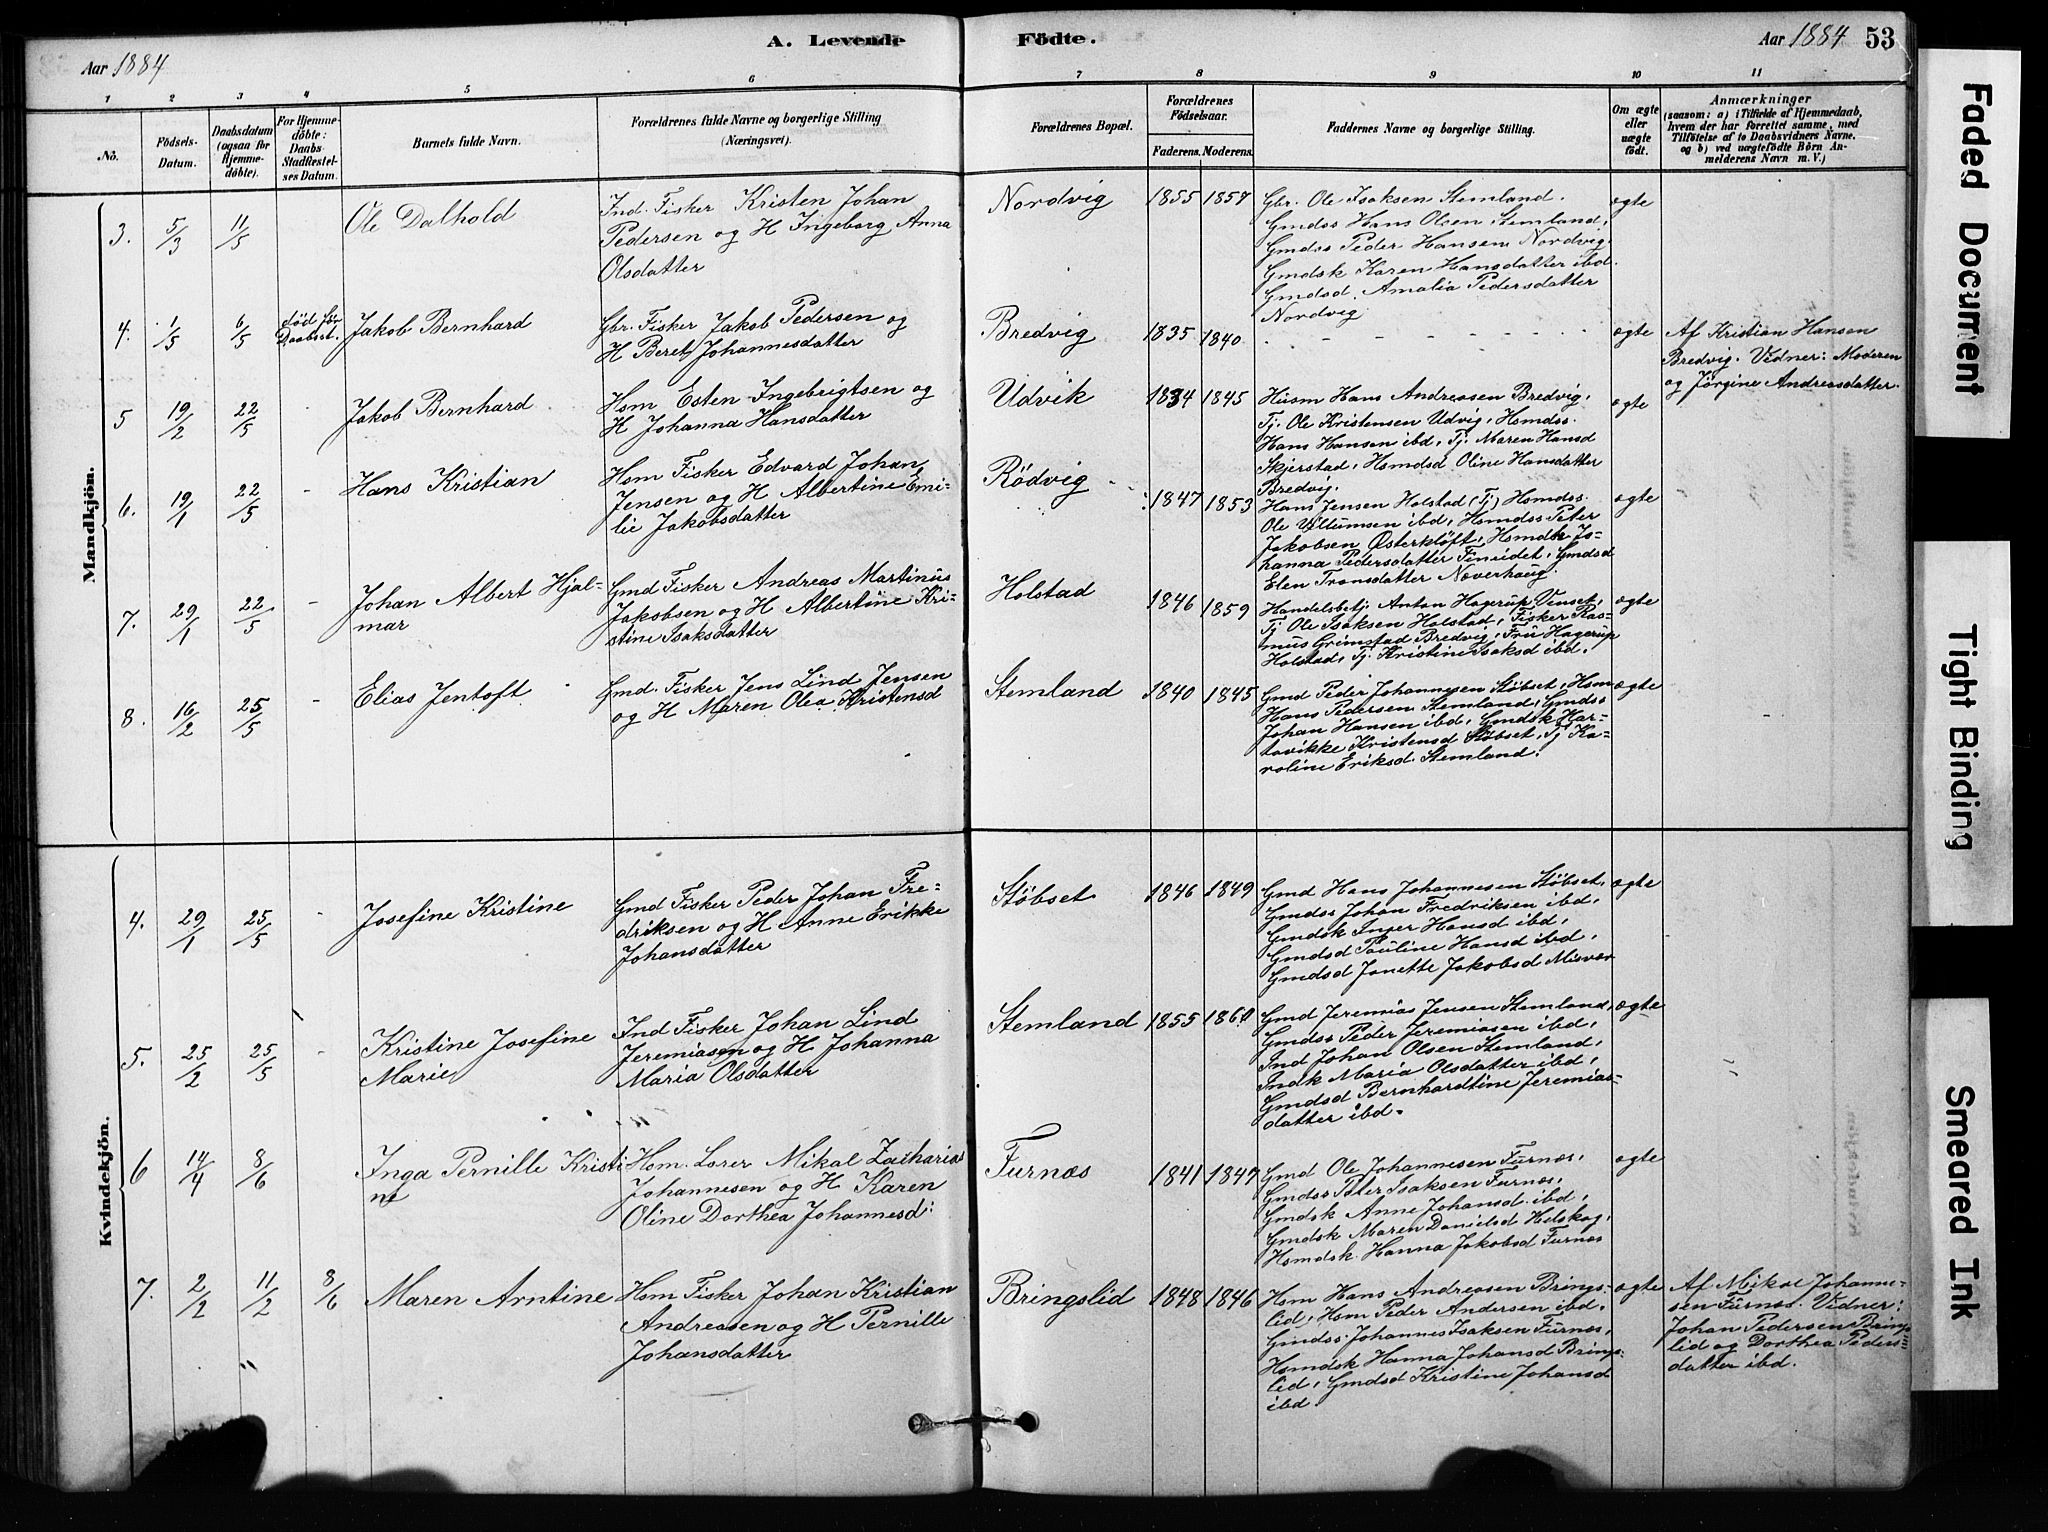 A. Levende Födte.
Aar 1884
Aar 1884 53
1 2 3 4 5 6 7 8 9 10 11
No.
Födsels-
Datum.
Daabsdatum
(ogsaa for
Hjemme-
döbte).
For Hjemme-
döbte:
Daabs-
Stadfæstel-
ses Datum.
Barnets fulde Navn.
Forældrenes fulde Navne og borgerlige Stilling
(Næringsvei).
Forældrenes Bopæl.
Forældrenes
Födselsaar.
Faderens. Moderens.
Faddernes Navne og borgerlige Stilling.
Om ægte
eller
uægte
födt.
Anmærkninger
(saasom: a) i Tilfælde af Hjemmedaab,
hvem der har forrettet samme, med
Tilföielse af to Daabsvidners Navne.
og b) ved uægtefödte Börn An-
melderens Navn m. V.)
Mandkjön.
3. 5/3 11/5
Ole Dalhold
Ind. Fisker Kristen Johan
Pedersen og H Ingeborg Anna
Olsdatter
Nordvig 1855 1857
Gbr. Ole Isaksen Stemland.
Gmdss Hans Olsen Stemland,
Gmdss Peder Hansen Nordvig
Gmdsk Karen Hansdatter ibd.
Gmdsd. Amalia Pedersdatter
Nordvig
ægte
4. 1/5 6/5 død før Daabsst.
Jakob Bernhard
Gbr. Fisker Jakob Pedersen og
H Beret Johannesdatter
Bredvig 1835 1840
- - - - - -
ægte
Af Kristian Hansen
Bredvig. Vidner: Moderen
og Jörgine Andreasdatter.
5 19/2 22/5 -
Jakob Bernhard
Hsm Esten Ingebrigtsen og
H Johanna Hansdatter
Udvik 1834 1845
Husm Hans Andreasen Bredvig,
Tj. Ole Kristensen Udvig, Hsmdss.
Hans Hansen ibd, Tj. Maren Hansd
Skjerstad, Hsmdsd Oline Hansdatter
Bredvig.
ægte
6. 19/1 22/5 -
Hans Kristian
Hsm Fisker Edvard Johan
Jensen og H Albertine Emi-
lie Jakobsdatter
Rødvig 1847 1853
Hans Jensen Holstad (Tj) Hsmdss.
Ole Villumsen ibd, Hsmdss Peter
Jakobsen Østerkløft, Hsmdk Jo-
hanna Pedersdatter Fineidet, Gmdsd
Elen Tronsdatter Noverhaug.
ægte
7. 29/1 22/5 -
Johan Albert Hjal-
mar
Gmd Fisker Andreas Martinus
Jakobsen og H Albertine Kri-
stine Isaksdatter
Holstad 1846 1859
Handelsbetj. Anton Hagerup Venset,
Tj Ole Isaksen Holstad, Fisker Ras-
mus Grimstad Bredvig, Fru Hagerup
Holstad, Tj. Kristine Isaksd ibd.
ægte
8. 16/2 25/5 -
Elias Jentoft
Gmd. Fisker Jens Lind Jensen
og H Maren Olea Kristensd
Stemland 1840 1845
Gmd Peder Johannesen Støbset, Hsm
Hans Pedersen Stemland, Gmdss
Johan Hansen ibd, Gmdsk Har-
tvikke Kristensd Støbset, Tj Ka-
roline Eriksd. Stemland.
ægte
Kvindekjön.
4. 29/1 25/5 -
Josefine Kristine
Gmd Fisker Peder Johan Fre-
driksen og H Anne Erikke
Johansdatter
Støbset 1846 1849
Gmd Hans Johannesen Støbset,
Gmdss Johan Fredriksen ibd,
Gmdsk Inger Hansd ibd,
Gmdsd Pauline Hansd ibd,
Gmdsd Janette Jakobsd Misvær
ægte
5. 25/2 25/5 -
Kristine Josefine
Marie
Ind Fisker Johan Lind
Jeremiasen og H Johanna
Maria Olsdatter
Stemland 1855 1860
Gmd Jeremias Jensen Stemland,
Gmdss Peder Jeremiasen ibd,
Ind Johan Olsen Stemland,
Indk Maria Olsdatter ibd,
Gmdsd Bernhardtine Jeremias-
datter ibd.
ægte
6 14/4 8/6
Inga Pernille Kristi
ne
Hsm. Lorer Mikal Zacharias
Johannesen og H Karen
Oline Dorthea Johannesd:
Furnæs 1841 1847
Gmd Ole Johannesen Furnæs,
Gmdss Peter Isaksen Furnæs,
Gmdsk Anne Johansd ibd,
Gmdsk Maren Danielsd Helskog,
Hsmdsk. Hanna Jakobsd Furnæs
ægte
7. 2/2 11/2 8/6
Maren Arntine
Hsm Fisker Johan Kristian
Andreasen og H Pernille
Johansdatter
Bringslid 1848 1846
Hsm Hans Andreasen Brings-
lid, Hsm Peder Andersen ibd.
Gmdss Johannes Isaksen Furnæs,
Hsmdsk Hanna Johansd Brings-
lid, Gmdsd Kristine Johansd
ibd.
ægte
Af Mikal Johanne-
sen Furnæs. Vidner:
Johan Pedersen Brings
lid og Dorthea Peders-
datter ibd.
Faded Document
Tight Binding
Smeared Ink